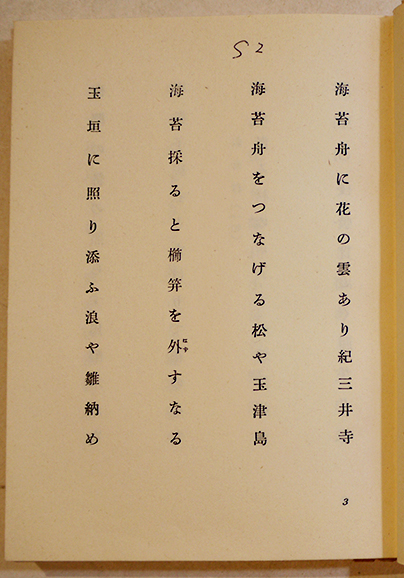 S2
海苔舟に花の雲あり紀三井寺
海苔舟をつなげる松や玉津島
海苔採ると櫛笄を外すなる
玉垣に照り添ふ浪や雛納め
3